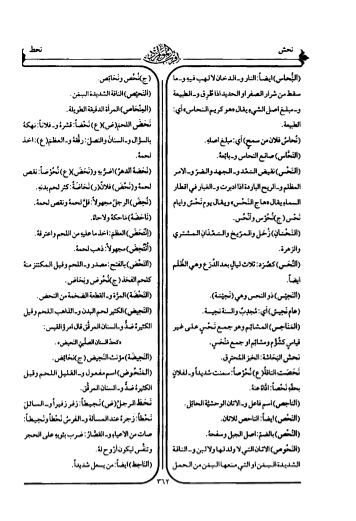 نحش
نحط
(النُّحاس) ايضاً: النار و۔الدخان لا لهب فيه و۔ما
سقط من شرار الصفر او الحديد اذا طُرِق و۔الطبيعة
و۔مبلغ اصل الشيء يقال «هو كريم النحاس» أي:
الطبيعة.
(نُحاسُ فلان من سمع) أي: مبلغ اصله.
(النَحّاس) صانع النحاس و۔بائعهُ.
(النَحْس) نقيض السَعْد و۔الجهد والضرّ و۔الامر
المظلم و۔الريح الباردة اذا ادبرت و۔الغبار في اقطار
السماء يقال «هاج النَحْس» ويقال يوم نَحْسٌ وايام
نَحْس (ج) نُحُوس وأنْحُس.
(النَحْسَان) زُحَل والمرّيخ والسَعْدان المشتري
والزهرة.
(النُحَس) كصُرَد: ثلاث ليالٍ بعد الدُرَع وهي الظُلَم
ايضاً.
(النَحِيْس) ذو النحس وهي (نَحِيْسَة).
(عام نَحِيْس) أي: مُجْدِب والسنة نحيسة.
(المَنَاحِس) المشائيم وهو جمع نَحْس على غير
قياس كسُؤْم ومشائم او جمع مَنْحَس.
نحش النِحَاشَة: الخبز المحترق.
نَحَصَت الناقة (ع) نُحُوْصاً: سمنت شديداً و۔لفلان
بحقّه نَحْصاً: ادّاه عنهُ.
(الناحِص) اسم فاعل و۔الاتان الوحشيّة الحائل.
(النَحْص) ايضاً: الناحص للاتان.
(النُحْص) بالضم: اصل الجبل وسفحهُ.
(النَحُوْص) الاتان التي لا ولد لها ولا لبن و۔الناقة
الشديدة السِمَن او التي منعها السِمَن من الحمل
(ج) نُحُص ونَحائِص.
(النَحِيْص) الناقة الشديدة السِمَن.
(المِنْحَاص) المرأة الدقيقة الطويلة.
نَحَضَ اللحمَ (ض) (ع) نَحْضاً: قشرهُ و۔فلاناً: نهكهُ
بالسؤال و۔السنان والنصل: رقّقهُ و۔العظمَ (ع): اخذ
لحمهُ.
نَحَضَهُ الدهرُ: اضرّ به و(نَحُضَ) (ع) نُحُوْضاً: نقص
لحمهُ و(نَحُضَ) فلان (ر) نَحَاضَةً: كثر لحم بدنهِ.
(نُحِضَ) الرجل مجهولاً: قلّ لحمهُ ونقص لحمهُ.
(نَاحَضَهُ) ماحكهُ ولاحاهُ.
(اِنْتَحَضَ) العظمَ: اخذ ما عليه من اللحم واعترقهُ.
(اُنْتُحِضَ) مجهولاً: ذهب لحمهُ.
(النَحْض) بالفتح: مصدر و۔اللحم وقيل المكتنز منهُ
كلحم الفخذ (ج) نُحُوض ونِحَاض.
(النَحْضَة) المرّة و۔القطعة الضخمة من النحض.
(النَحِيْض) الكثير لحم البدن و۔الذاهب اللحم وقيل
الكثيرهُ ضدّ و۔السنان المرقّق قال امرؤ القيس:
«كحدّ السنان الصلّبيّ النحيض».
(النَحِيْضَة) مؤنث النحيض (ج) نحائض.
(المَنْحُوض) اسم مفعول و۔القليل اللحم وقيل
الكثيرهُ ضدّ و۔السنان المرقّق.
نَحَطَ الرجلُ (ض) نَحِيْطاً: زفر زفيراً و۔السائلَ
نَحْطاً: زجرهُ عند المسألة و۔الفرسُ نَحْطاً ونَحِيْطاً:
صات من الاعياء و۔القصّار: ضرب بثوبه على الحجر
وتنفّس ليكون أروح لهُ.
(الناحِط) ايضاً: من يسعل شديداً.
٣٦٢